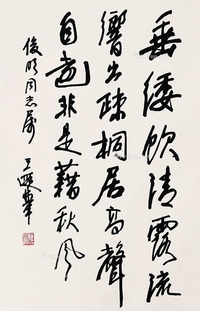 垂緌饮清露流
響出疎桐居高聲
自遠非是藉秋风
俊明同志属
王遐舉